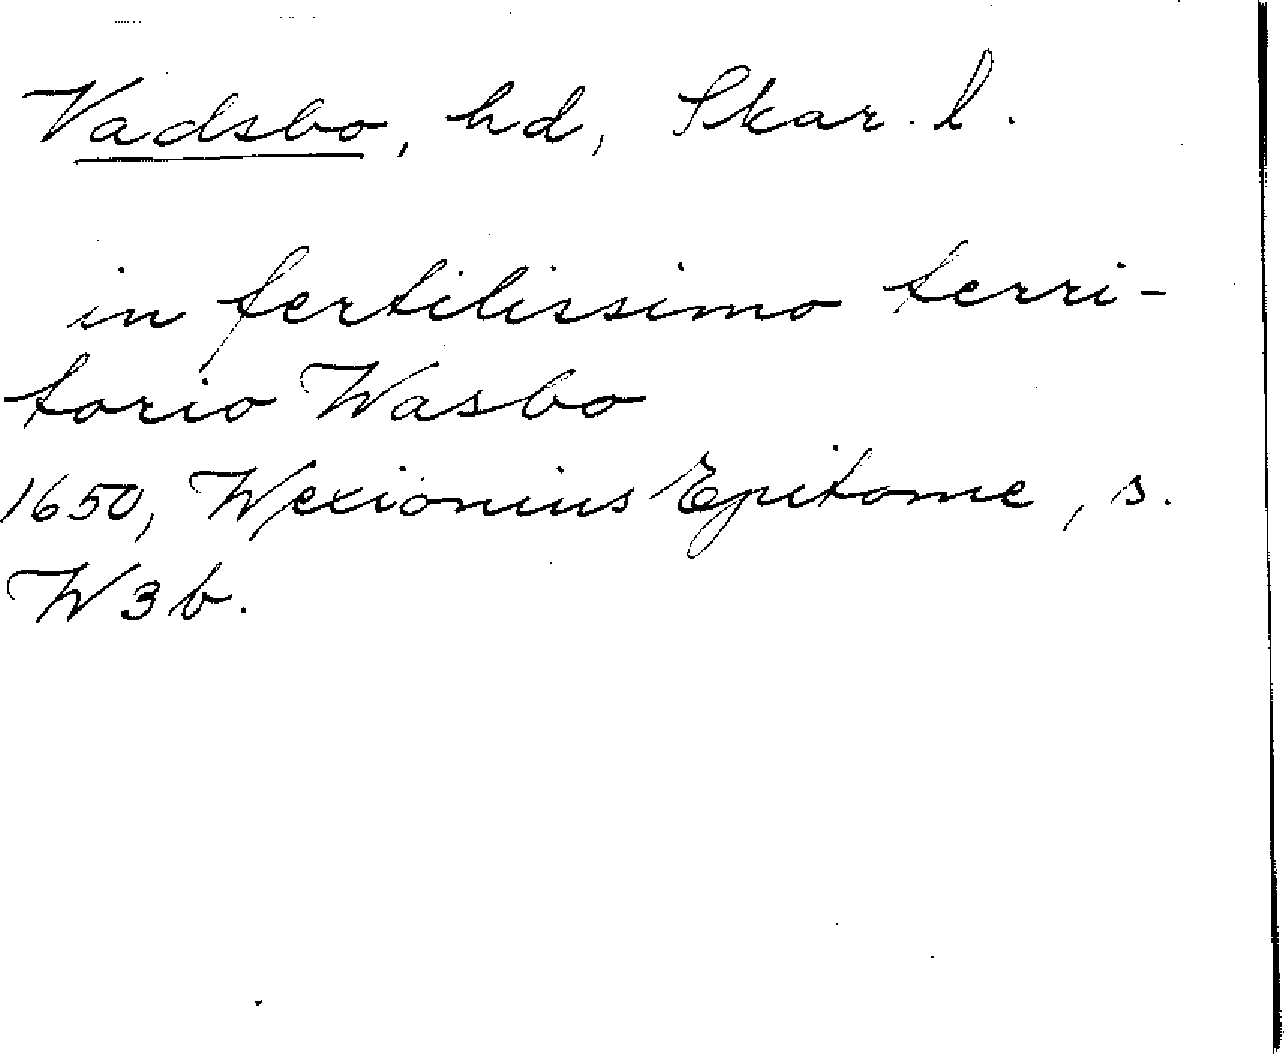 Vadsbo, hd, Skar. l.
in fertilissimo terri-
torio Wasbo
1650, Wexionius Epitome, s.
W3b.